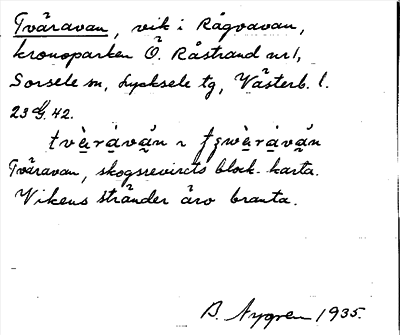 Tväravan, vik i Rågvavan,
kronoparken Ö. Råstrand nr 1,
Sorsele sn, Lycksele tg, Västerb. l.
23 42.
Tväravan, skogsrevirets block-karta.
Vikens stränder äro branta.
B. Nygren 1935.